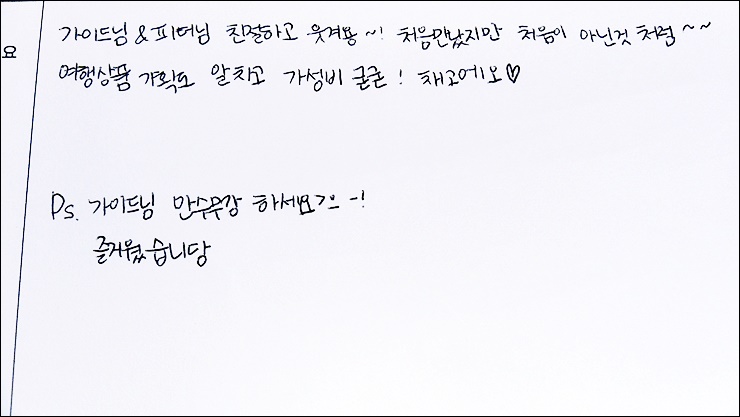 요
가이드님 & 피터님 친절하고 웃겨용 ~! 처음만났지만 처음이 아닌것 처럼 ~~
여행상품 기획도 알차고 가성비 굳굳 ! 채고에오♡
Ps. 가이드님 만수무강 하세요 -!
즐거웠습니당